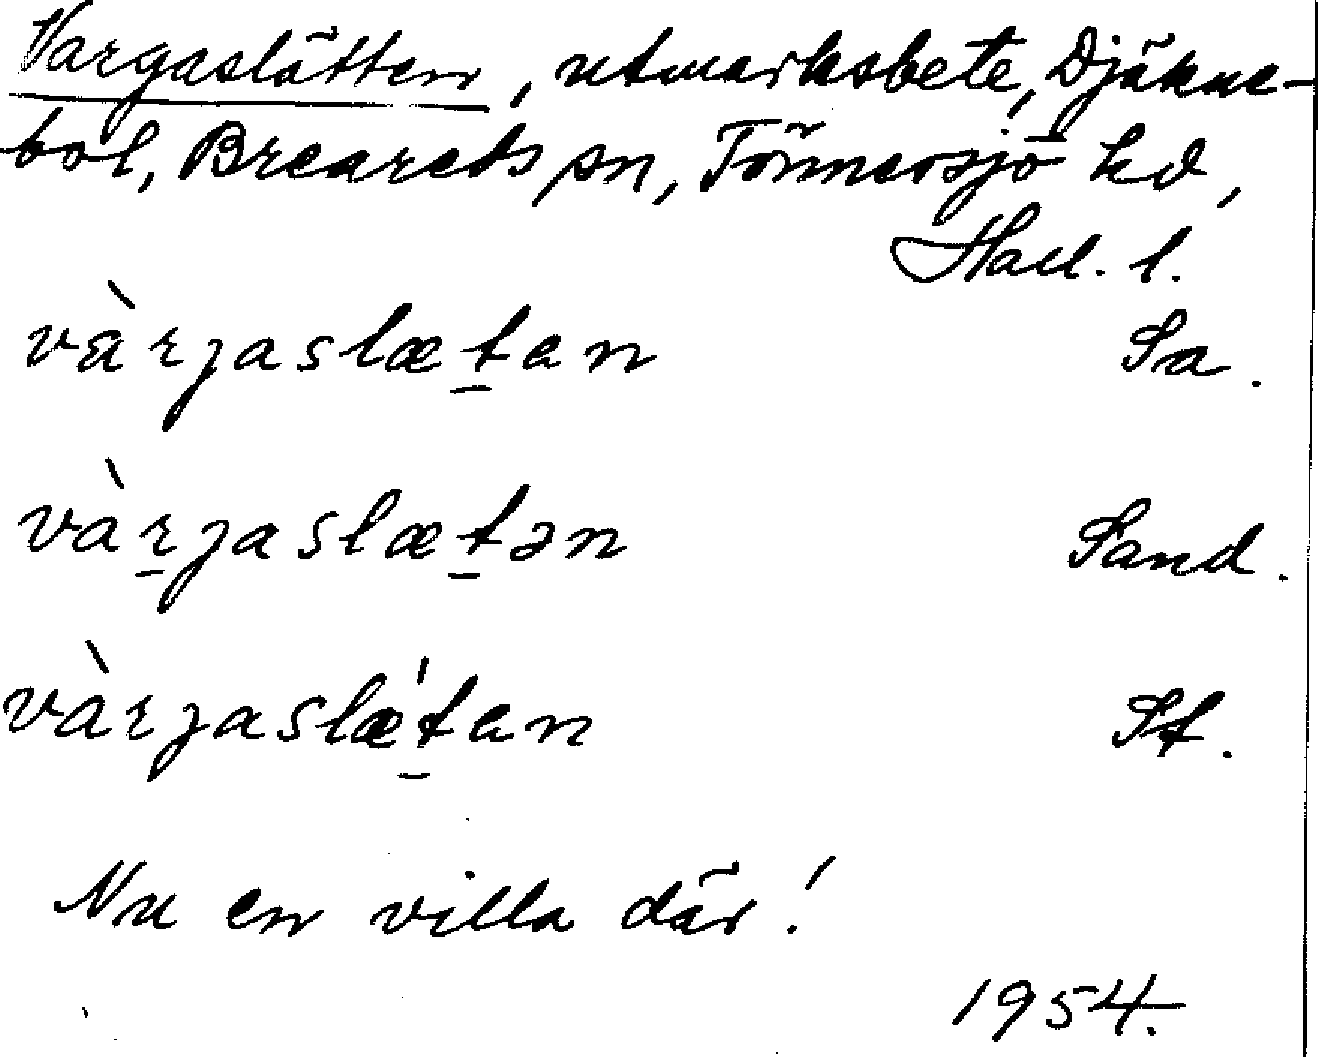 Vargaslätten, utmarksbete, Djäkne-
bol, Breareds sn, Tönnersjö hd,
Hall. l.
vàrgaslætan Sa.
vàrgaslætən Sand.
vàrgaslæ'tan St.
Nu en villa där!
1954.